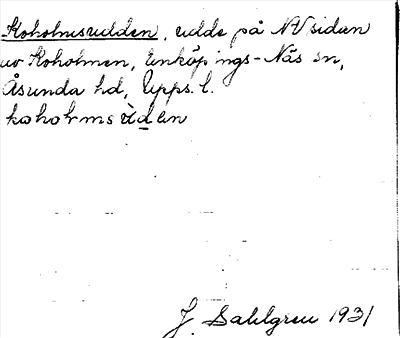 Koholmsudden, udde på NV sidan
av Koholmen, Enköpings-Näs sn,
Åsunda hd, Upps. l.
koholmsùden
J. Sahlgren 1931